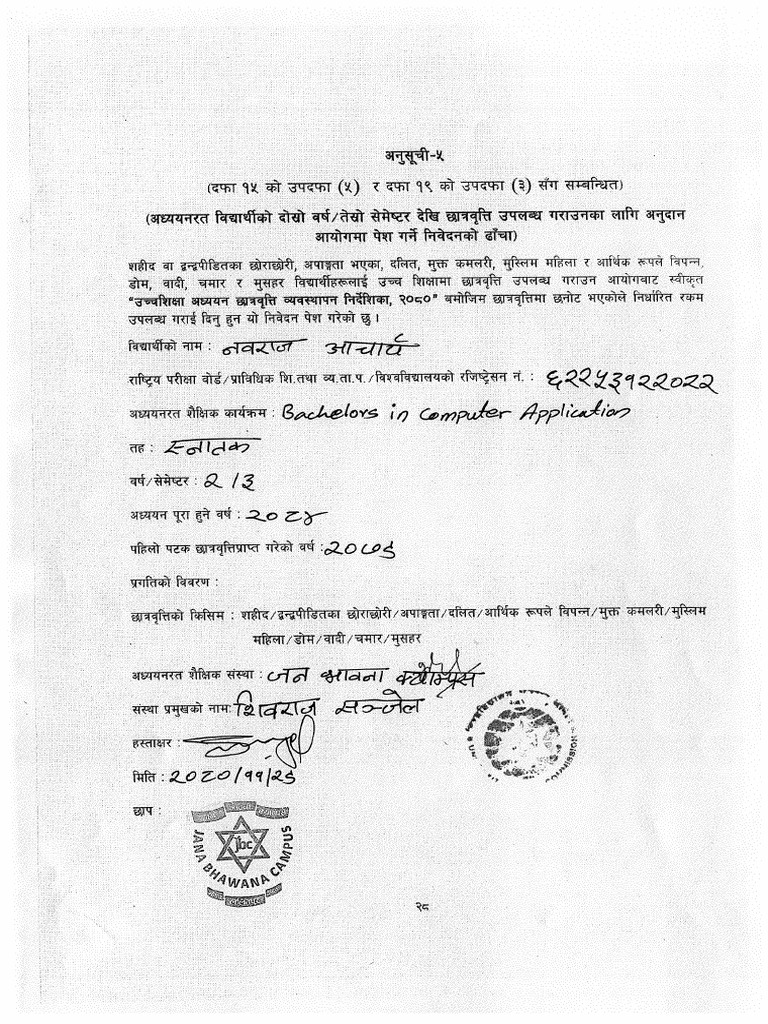 अनुसूची-५
(दफा १५ को उपदफा (५) र दफा १९ को उपदफा (३) सँग सम्बन्धित)
(अध्ययनरत विद्यार्थीको दोस्रो वर्ष/तेस्रो सेमेष्टर देखि छात्रवृत्ति उपलब्ध गराउनका लागि अनुदान
आयोगमा पेश गर्ने निवेदनको ढाँचा)
शहीद वा द्वन्द्वपीडितका छोराछोरी, अपाङ्गता भएका, दलित, मुक्त कमलरी, मुस्लिम महिला र आर्थिक रूपले विपन्न,
डोम, वादी, चमार र मुसहर विद्यार्थीहरूलाई उच्च शिक्षामा छात्रवृत्ति उपलब्ध गराउन आयोगबाट स्वीकृत
"उच्चशिक्षा अध्ययन छात्रवृत्ति व्यवस्थापन निर्देशिका, २०८०" बमोजिम छात्रवृत्तिमा छनोट भएकोले निर्धारित रकम
उपलब्ध गराई दिनु हुन यो निवेदन पेश गरेको छु ।
विद्यार्थीको नाम : नवराज आचार्य
राष्ट्रिय परीक्षा वोर्ड/प्राविधिक शि.तथा व्य.ता.प./विश्वविद्यालयको रजिष्ट्रेसन नं. : ६२२५३१२२०२२
अध्ययनरत शैक्षिक कार्यक्रम : Bachelors in Computer Application
तह : स्नातक
वर्ष/सेमेष्टर : २/३
अध्ययन पूरा हुने वर्ष : २०८४
पहिलो पटक छात्रवृत्तिप्राप्त गरेको वर्ष : २०७९
प्रगतिको विवरण :
छात्रवृत्तिको किसिम : शहीद/द्वन्द्वपीडितका छोराछोरी/अपाङ्गता/दलित/आर्थिक रूपले विपन्न/मुक्त कमलरी/मुस्लिम
महिला/डोम/वादी/चमार/मुसहर
अध्ययनरत शैक्षिक संस्था : जन भावना क्याम्पस
संस्था प्रमुखको नाम: शिवराज सञ्जेल
हस्ताक्षर :
मिति : २०८०/११/२९
छाप :
JANA BHAWANA CAMPUS
jbc
COMMISSION
२८